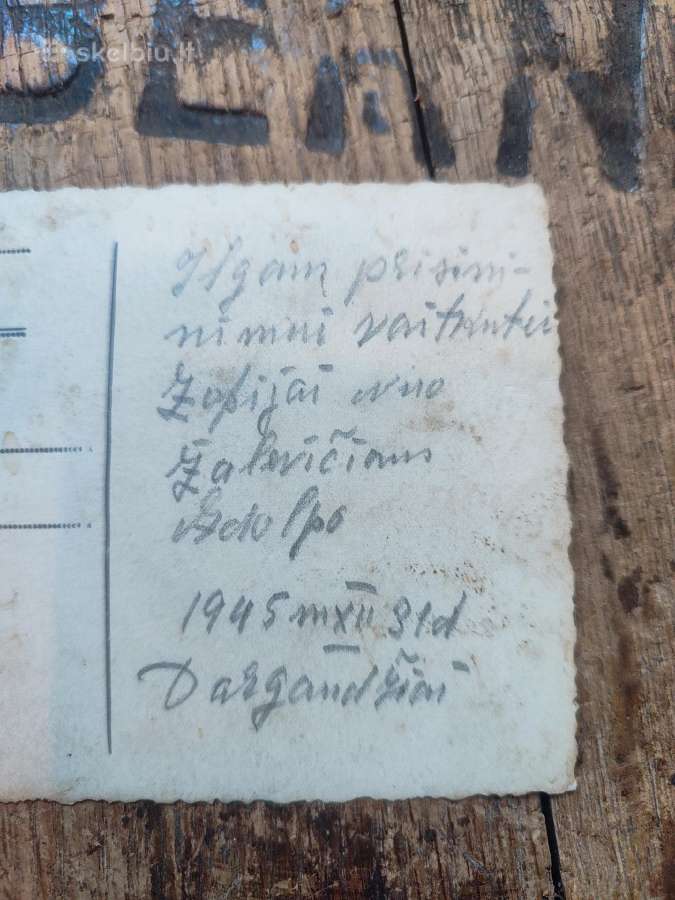 Enskelbiu.lt
Ilgam prisimi-
nimui vaitkutei
Zofijai nuo
Žalevičiaus
Adolpo
1945 m XII 31d
Dargaudžiai